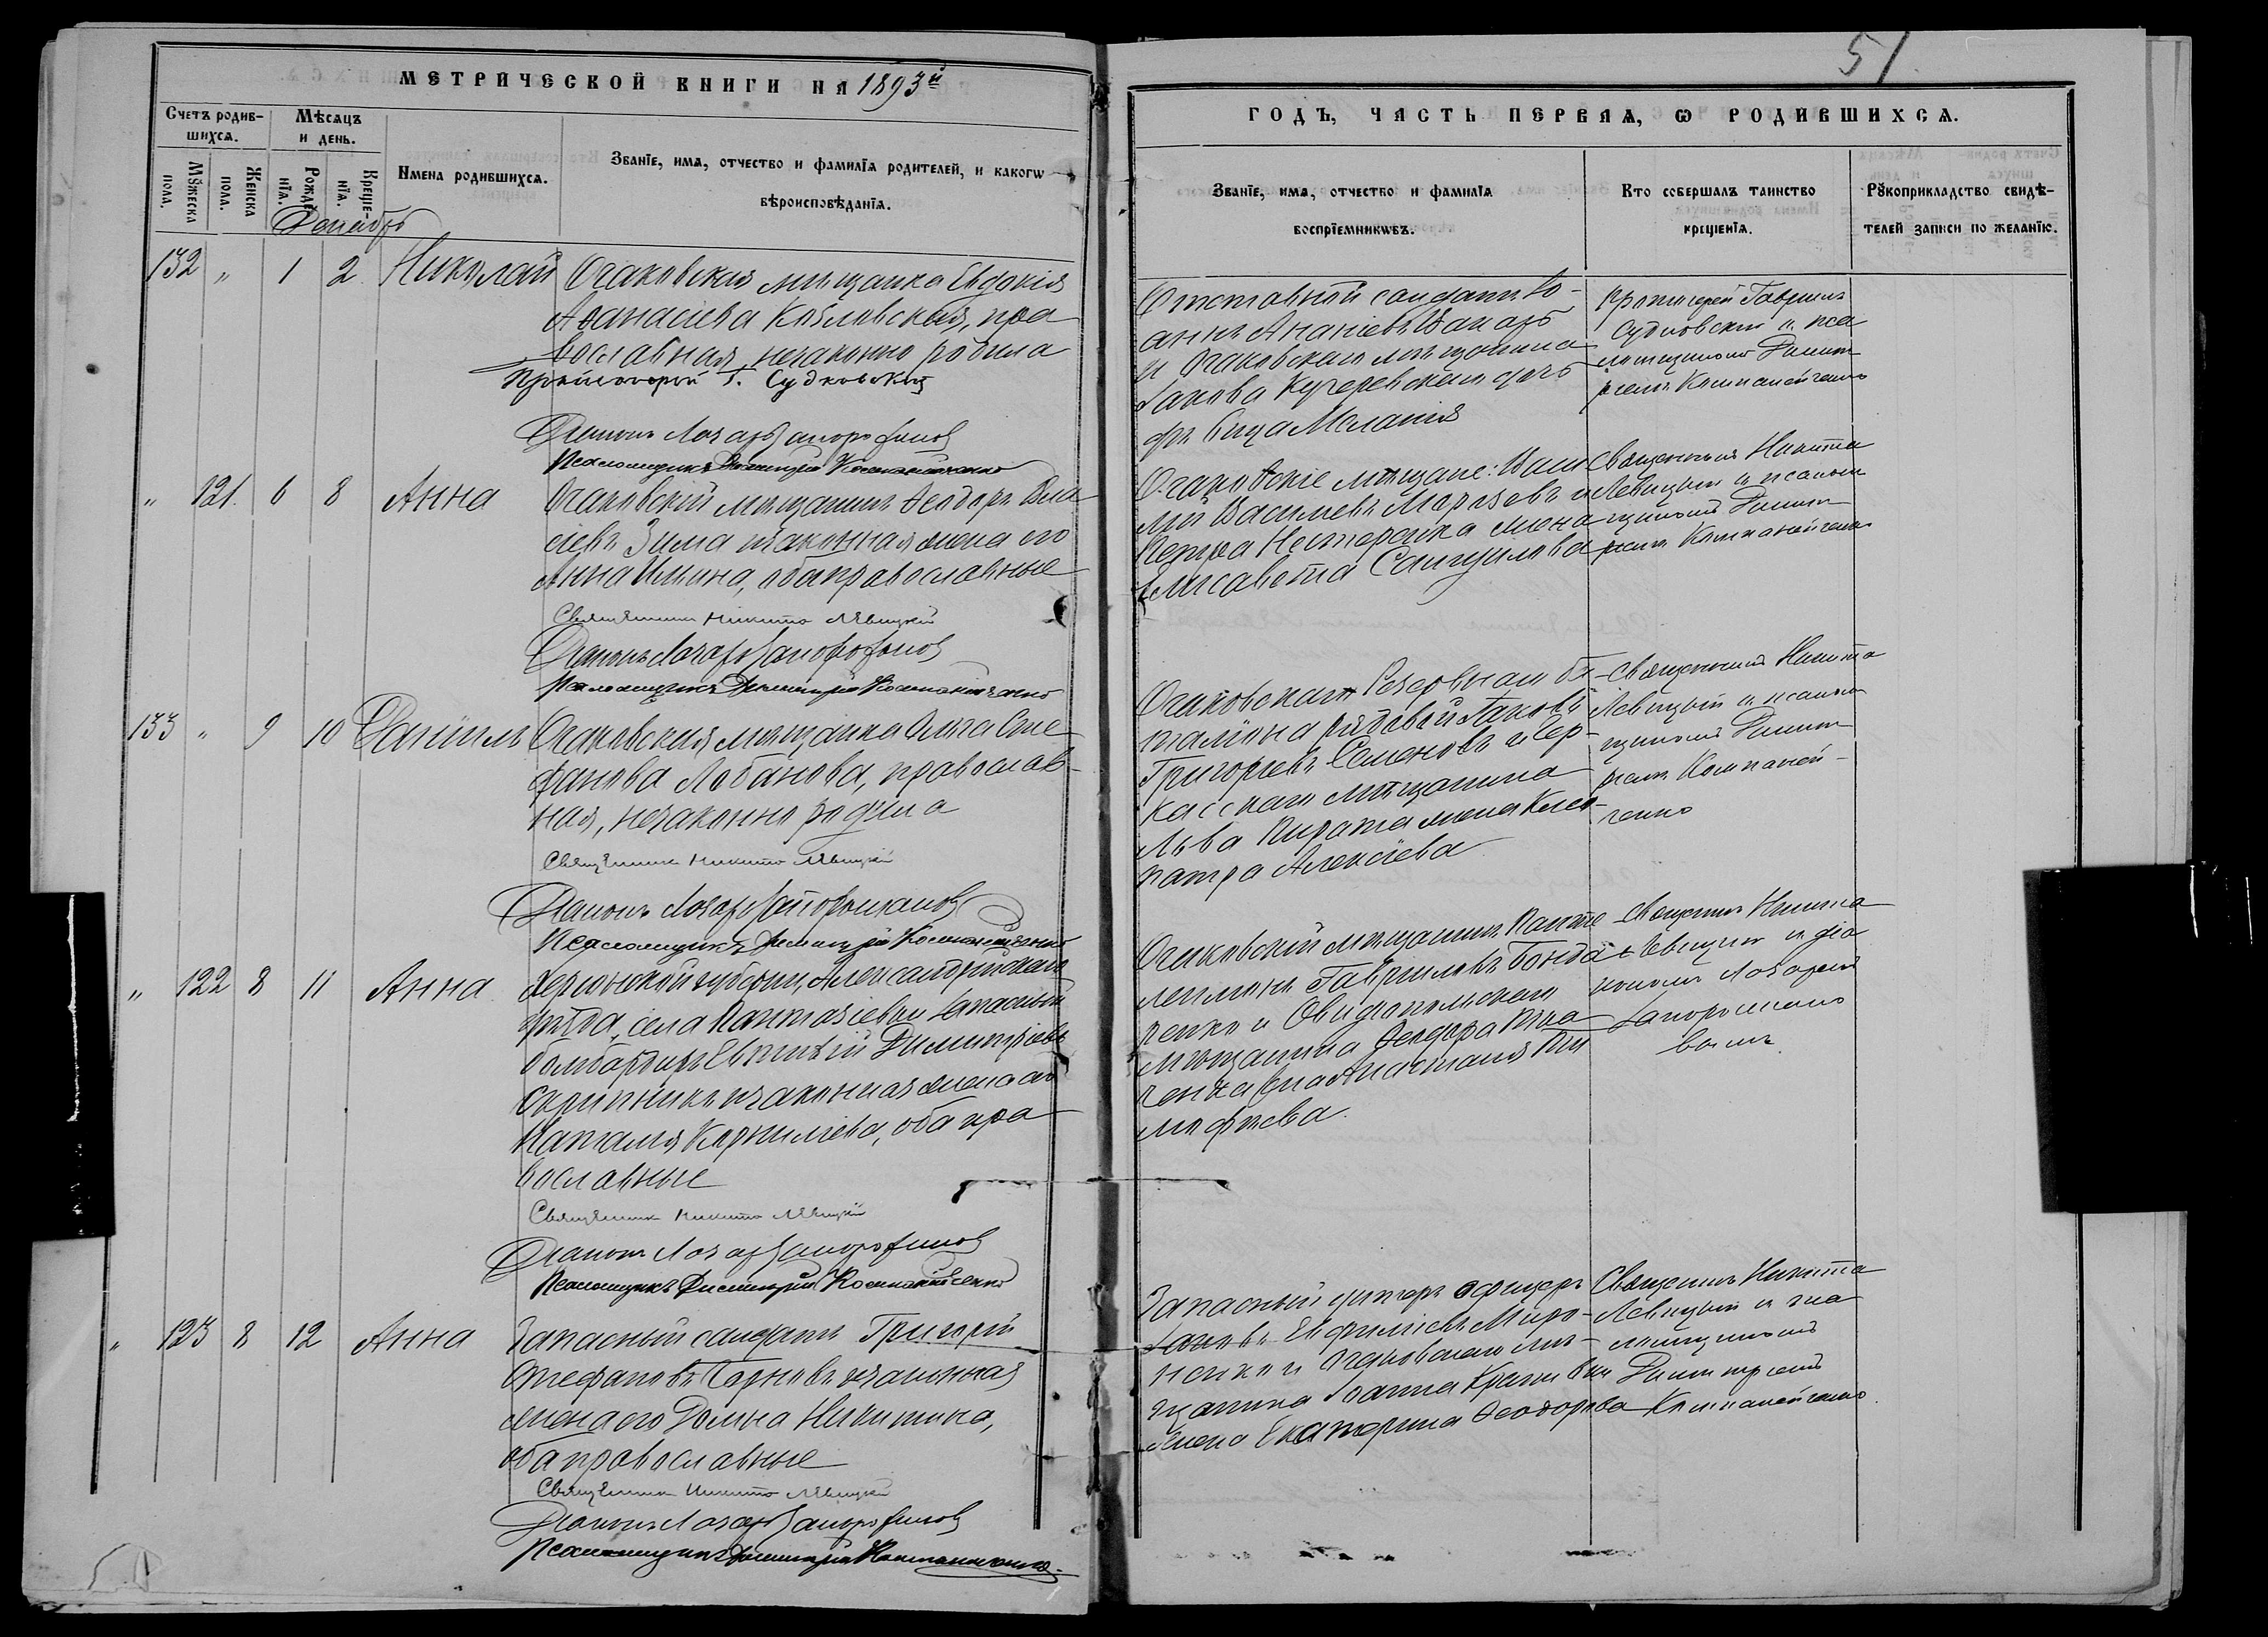 МЕТРИЧЕСКОЙ КНИГИ НА 1893й
Счетъ родив-
шихся.
Мѣсяцъ
и день.
Мꙋжеска
пола.
Женска
пола.
Рожде-
нїя.
Крещє-
нїя.
Имена родившихся.
Званїе, имя, отчество и фамилїя родителей, и какогѡ
вѣроисповѣданїя.
Декабрь
132 " 1 2 Николай Очаковская мѣщанка Евдокія
Аѳанасіева Козловская, пра
вославная, незаконно родила
Протоіерей Г. Судковскій
Діаконъ Лазарь Запорожановъ
Псаломщикъ Димитрій Компанейченко
" 121. 6 8 Анна Очаковскій мѣщанинъ Ѳеодоръ Вла
сіевъ Зима и законная жена его
Анна Ильина, оба православные
Священникъ Никита Лѣвицкій
Діаконъ Лазарь Запорожановъ
Псаломщикъ Димитрій Компанейченко
133 " 9 10 Даніилъ Очаковская мѣщанка Ольга Сте
фанова Лобанова, православ-
ная, незаконно родила
Священникъ Никита Лѣвицкій
Діаконъ Лазарь Запорожановъ
Псаломщикъ Димитрій Компанейченко
" 122 8 11 Анна Херсонской губерніи, Александрійскаго
уѣзда, села запасный
бомбардиръ Евтихій Димитріевъ
Скрипникъ и законная жена его
Наталія Корнилієва, оба пра
вославные
Священникъ Никита Лѣвицкій
Діаконъ Лазарь Запорожановъ
Псаломщикъ Димитрій Компанейченко
" 123 8 12 Анна Запасный солдатъ Григорій
Стефановъ и законная
жена его Домна Никитина,
оба православные
Священникъ Никита Лѣвицкій
Діаконъ Лазарь Запорожановъ
Псаломщикъ Димитрій Компанейченко
51
ГОДЪ, ЧАСТЬ ПЕРВАЯ, Ѡ РОДИВШИХСЯ.
Званїе, имя, отчество и фамилїя
воспрїемникѡвъ.
Кто совершалъ таинство
крещенїя.
Рꙋкоприкладство свидѣ-
телей записи по желанїю.
Отставной солдатъ Іо-
аннъ Ананіевъ
и Очаковскаго мѣщанина
Іакова Кучеревскаго дочь
дѣвица Меланія
Протоіерей Гавріилъ
Судковскій и пса
ломщикомъ Димит
ріемъ Компанейченко
Очаковскіе мѣщане: Васи
лій Васильевъ Морозовъ и
Петра Нестеренка жена
Елисавета Самуилова
Священникъ Никита
Левицкій и псалом
щикомъ Димит
ріемъ Компанейченко
Очаковскаго Резервнаго ба-
таліона рядовой Іаковъ
Григорьевъ Семеновъ и Чер-
касскаго мѣщанина
Льва жена Клео-
патра Алексіева
Священникъ Никита
Левицкій и псалом
щикомъ Димит
ріемъ Компаней-
ченко
Очаковскій мѣщанинъ Панте
леимонъ Гавріиловъ Бонда
ренко и Овидіопольскаго
мѣщанина Ѳеодора
жена Анастасія Ти
моѳіева.
Священникъ Никита
Левицкій и діа
кономъ Лазаремъ
Запорожано
вымъ
Запасный унтеръ офицеръ
Іаковъ Евфиміевъ Миро-
ненко и Очаковскаго мѣ-
щанина Іоанна
жена Екатерина Ѳеодорова
Священникъ Никита
Левицкій и пса
ломщикомъ
Димитріемъ
Компанейченко